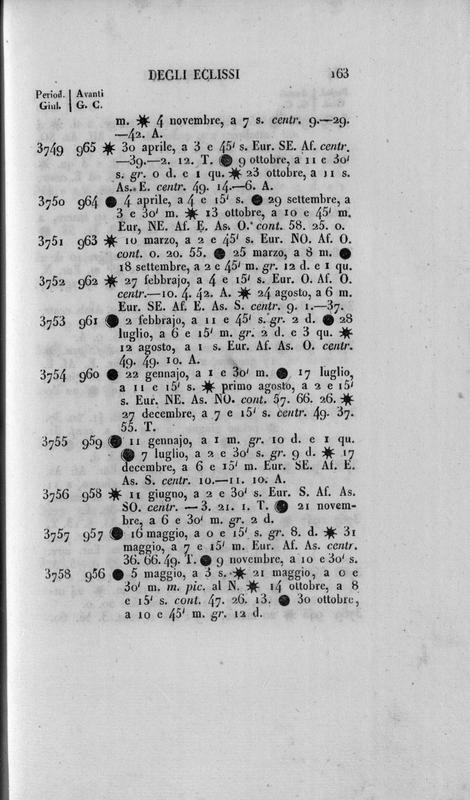 DEGLI ECLISSI 163
Period. | Avanti
Giul. | G. C.
m. ✷ 4 novembre, a 7 s. centr. 9.—29.
—42. A.
3749 965 ✷ 30 aprile, a 3 e 45' s. Eur. SE. Af. centr.
—39.—2. 12. T. ● 9 ottobre, a 11 e 30'
s. gr. 0 d. e 1 qu. ✷ 23 ottobre, a 11 s.
As. E. centr. 49. 14.—6. A.
3750 964 ● 4 aprile, a 4 e 15' s. ● 29 settembre, a
3 e 30' m. ✷ 13 ottobre, a 10 e 45' m.
Eur, NE. Af. E. As. O. cont. 58. 25. 0.
3751 963 ✷ 10 marzo, a 2 e 45' s. Eur. NO. Af. O.
cont. 0. 20. 55. ● 25 marzo, a 8 m. ●
18 settembre, a 2 e 45' m. gr. 12 d. e 1 qu.
3752 962 ✷ 27 febbrajo, a 4 e 15' s. Eur. O. Af. O.
centr.—10. 4. 42. A. ✷ 24 agosto, a 6 m.
Eur. SE. Af. E. As. S. centr. 9. 1.—37.
3753 961 ● 2 febbrajo, a 11 e 45' s. gr. 2 d. ● 28
luglio, a 6 e 15' m. gr. 2 d. e 3 qu. ✷
12 agosto, a 1 s. Eur. Af. As. O. centr.
49. 49. 10. A.
3754 960 ● 22 gennajo, a 1 e 30' m. ● 17 luglio,
a 11 e 15' s. ✷ primo agosto, a 2 e 15'
s. Eur. NE. As. NO. cont. 57. 66. 26. ✷
27 decembre, a 7 e 15' s. centr. 49. 37.
55. T.
3755 959 ● 11 gennajo, a 1 m. gr. 10 d. e 1 qu.
● 7 luglio, a 2 e 30' s. gr. 9 d. ✷ 17
decembre, a 6 e 15' m. Eur. SE. Af. E.
As. S. centr. 10.—11. 10. A.
3756 958 ✷ 11 giugno, a 2 e 30' s. Eur. S. Af. As.
SO. centr. —3. 21. 1. T. ● 21 novem-
bre, a 6 e 30' m. gr. 2 d.
3757 957 ● 16 maggio, a 0 e 15' s. gr. 8. d. ✷ 31
maggio, a 7 e 15' m. Eur. Af. As. centr.
36. 66. 49. T. ● 9 novembre, a 10 e 30' s.
3758 956 ● 5 maggio, a 3 s. ✷ 21 maggio, a 0 e
30' m. m. pic. al N. ✷ 14 ottobre, a 8
e 15' s. cont. 47. 26. 13. ● 30 ottobre,
a 10 e 45' m. gr. 12 d.